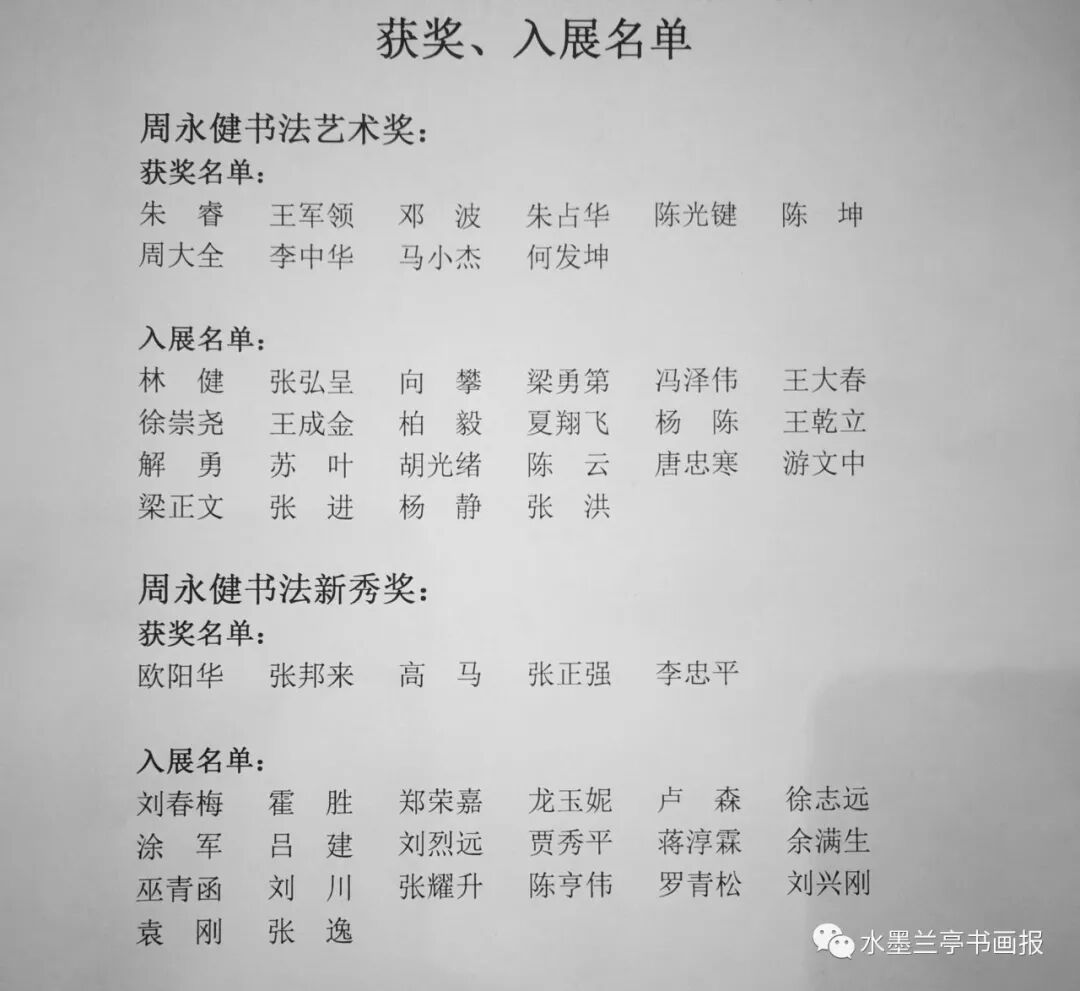 获奖、入展名单
周永健书法艺术奖：
获奖名单：
朱　睿　王军领　邓　波　朱占华　陈光键　陈　坤
周大全　李中华　马小杰　何发坤
入展名单：
林　健　张弘呈　向　攀　梁勇第　冯泽伟　王大春
徐崇尧　王成金　柏　毅　夏翔飞　杨　陈　王乾立
解　勇　苏　叶　胡光绪　陈　云　唐忠寒　游文中
梁正文　张　进　杨　静　张　洪
周永健书法新秀奖：
获奖名单：
欧阳华　张邦来　高　马　张正强　李忠平
入展名单：
刘春梅　霍　胜　郑荣嘉　龙玉妮　卢　森　徐志远
涂　军　吕　建　刘烈远　贾秀平　蒋淳霖　余满生
巫青函　刘　川　张耀升　陈亨伟　罗青松　刘兴刚
袁　刚　张　逸
水墨兰亭书画报